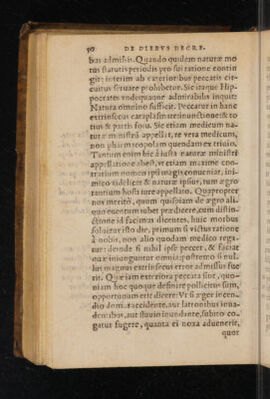 50 DE DIEBVS DECRE.
bus admissis. Quando quidem naturæ mo
tus statutis periodis pro sui ratione contin
git: interim ab exterioribus peccatis cir-
cuitus seruare prohibetur. Sic itaque Hip
pocrates vndequaque admirabilis inquit:
Natura omnino sufficit. Peccatur in hanc
extrinsecus
& partis focu. Sic etiam medicum natu-
ræ ministrũ appellãt, te vero medicum,
non pharmacopolam quendam ex triuio.
Tantum enim hic à iusta naturæ ministri
appellatione abest, vt etiam nomine
contrarium ipsi magis conueniat, ini-
mico videlicet & naturæ ipsius, tum ægro
tantium hostis iure appellato. Quapropter
nos merito, quum quispiam de ægro ali-
quo euentum iubet prædicere, cum distin-
ctione id facimus dicentes, huic morbus
soluetur isto die, primum si victus ratione
à nobis, non alio quodam medico rega-
tur: deinde si nihil ipse peccet, & faciat
quæ iniunguntur omnia: postremo si nul-
lus magnus extrinsecus error admissus fue
rit. Quæ iam exteriora peccata sint, quo-
niam hoc quoque definire polliciti sum,
opportunum erit dicere: Vt si æger incen-
dio domus accidente, aut latronibus inua-
dentibus, aut fluuio inundante, subito co-
gatur fugere, quanta ei noxa aduenerit,
quor